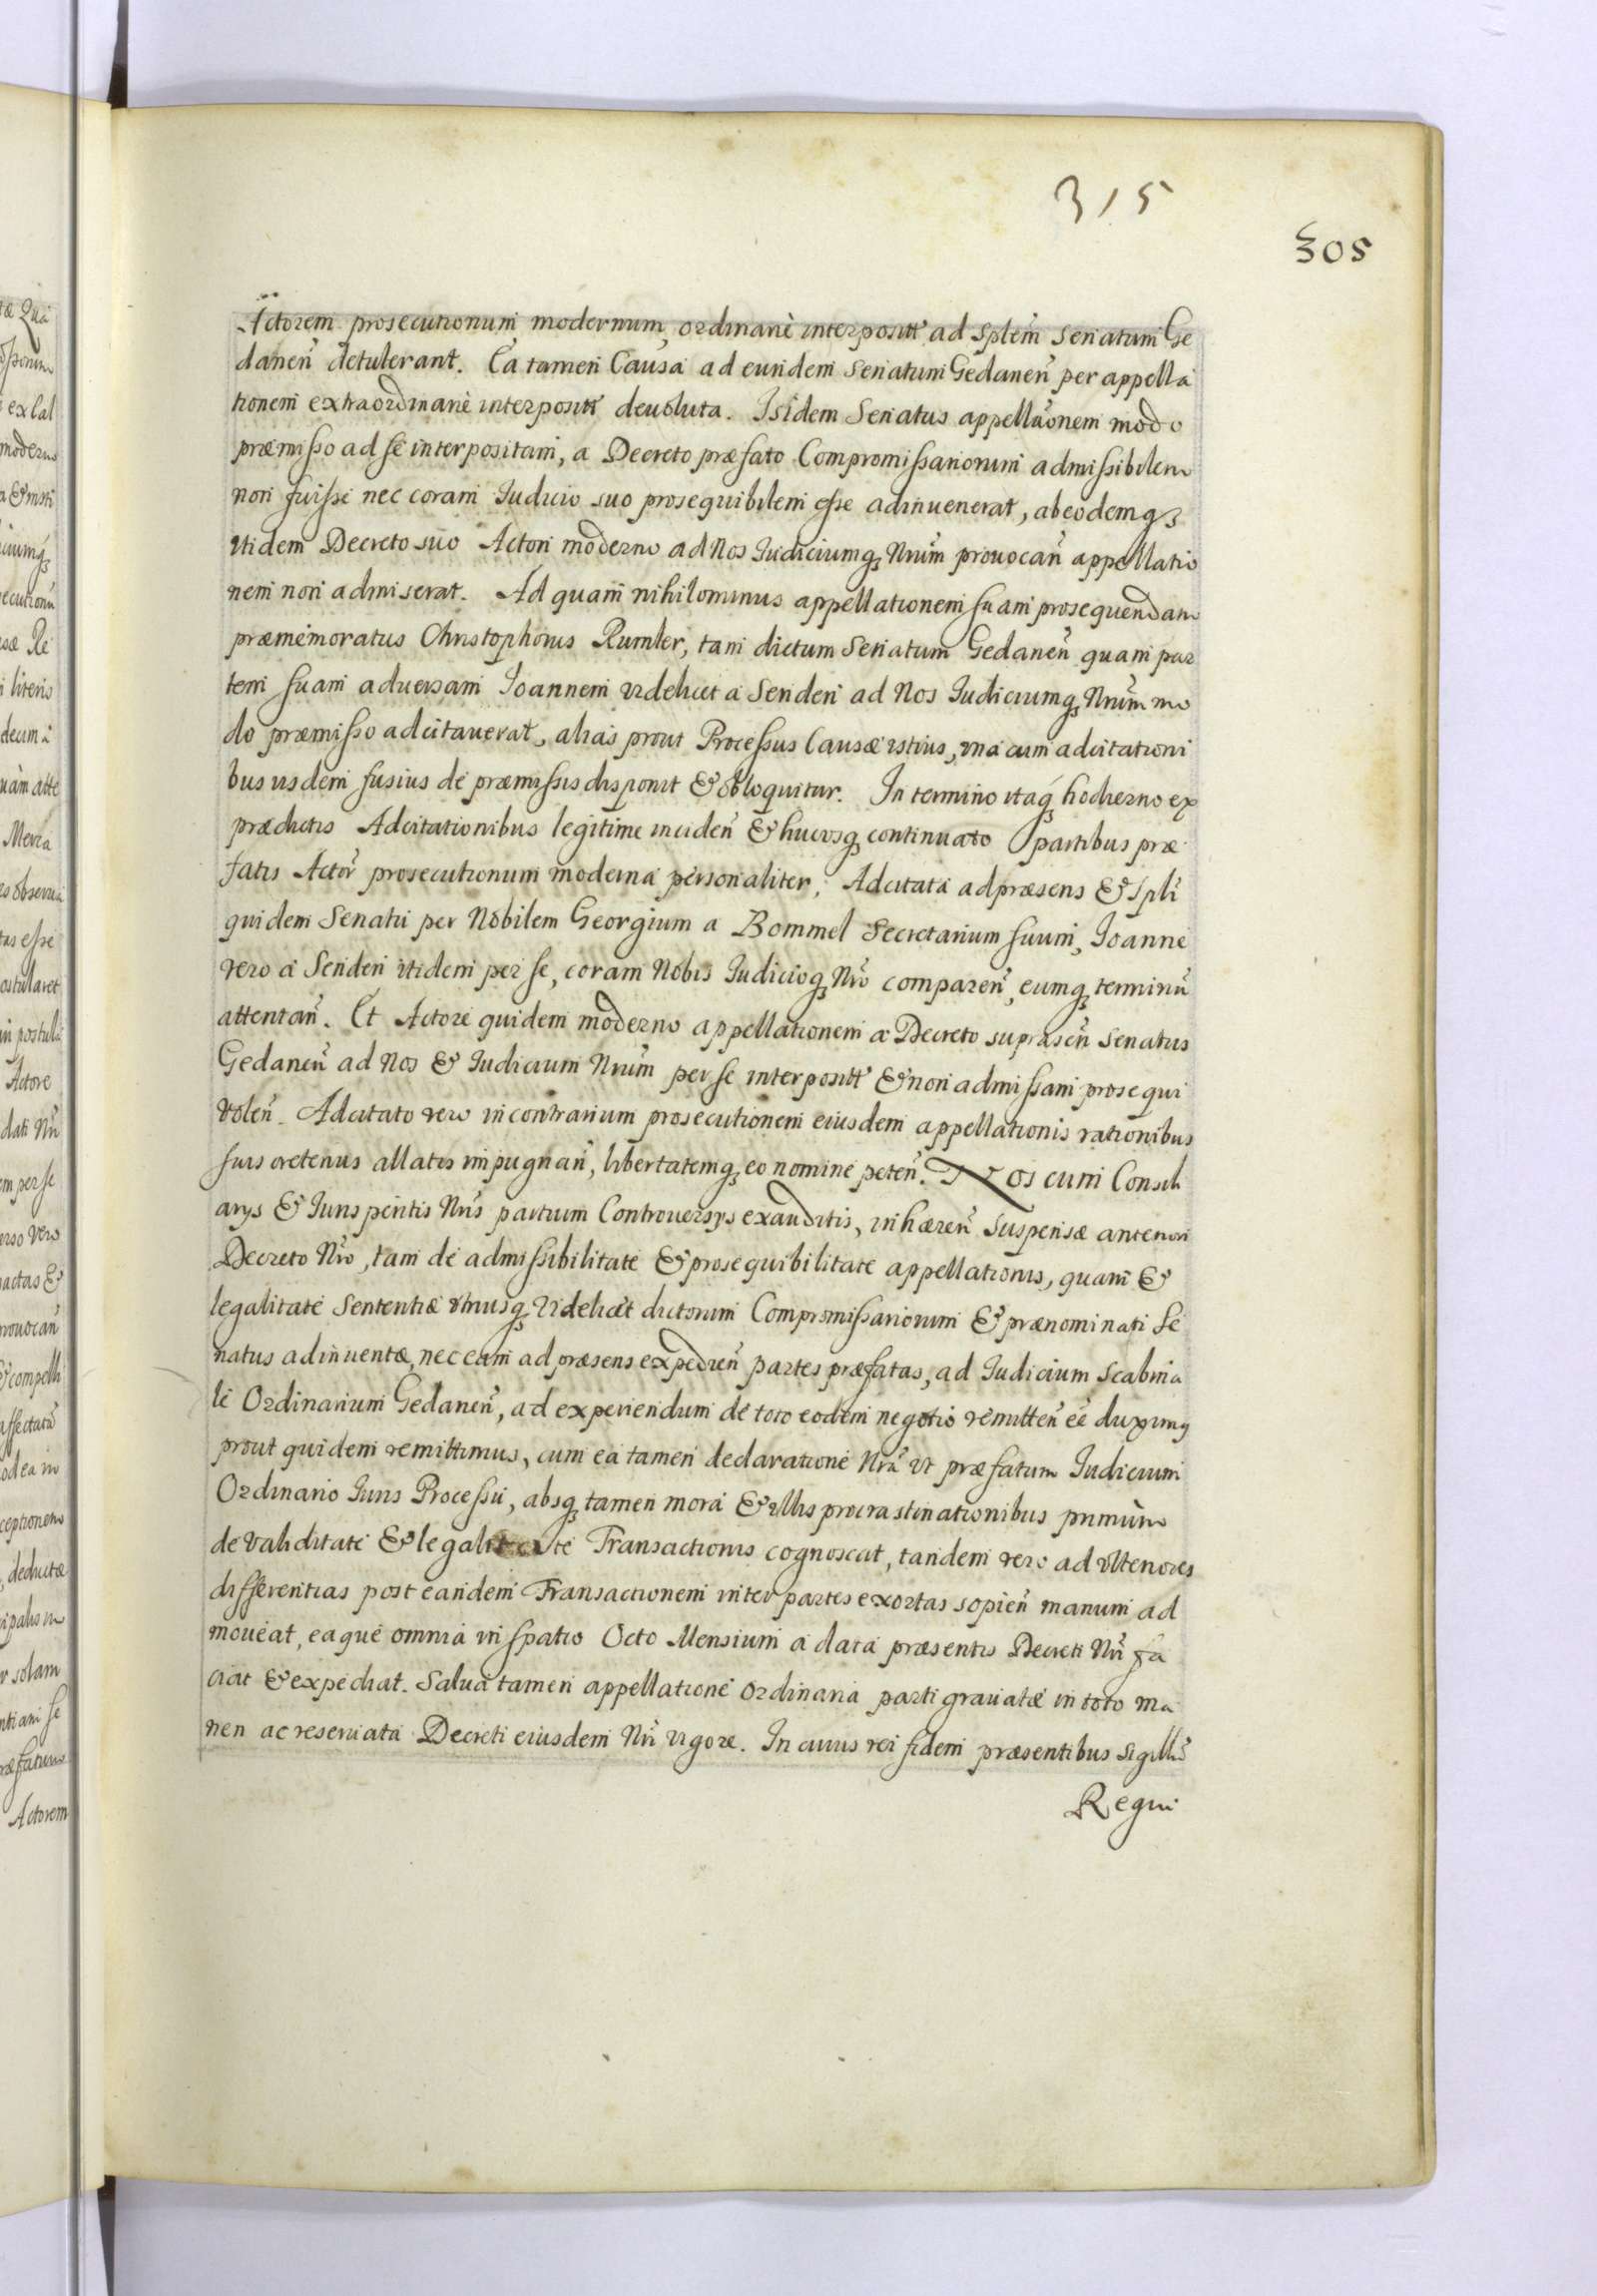 315
305
Actorem prosecutionum modernum, ordinariè interposit̃ ad Splem̃ Senatum Ge
danen̄ detulerant. Ea tamen Causa ad eundem Senatum Gedanen̄ per appella
tionem extraordinariè interposit̃ deuoluta. Isidem Senatus appellaõnem modo
præmisso ad se interpositam, a Decreto præfato Compromissariorum admissibilem
non fuisse nec coram Iudicio suo prosequibilem esse adinuenerat, ab eodemqꝫ
itidem Decreto suo Actori moderno ad Nos Iudiciumqꝫ Nrũm prouocan̄ appellatio
nem non admiserat. Ad quam nihilominus appellationem suam prosequendam
præmemoratus Christophorus Rumler, tam dictum Senatum Gedanen̄ quam par
tem suam aduersam Ioannem videlicet à Senden ad Nos Iudiciumqꝫ Nrũm mo
do præmisso adcitauerat, alias prout Processus Causæ istius, vnà cum adcitationi
bus ijsdem fusius de præmissis disponit & obloquitur. In termino itaqꝫ hodierno ex
prædictis Adcitationibus legitime inciden̄ & hucusqꝫ continuato partibus præ
fatis Actor̃ prosecutionum moderna personaliter, Adcitata ad præsens & Spli
quidem Senatu per Nobilem Georgium a Bommel Secretarium suum, Ioanne
vero à Senden itidem per se, coram Nobis Iudicioqꝫ Nr̃o comparen̄, eumqꝫ terminũ
attentan̄. Et Actore quidem moderno appellationem a Decreto suprascr̃ Senatus
Gedanen̄ ad Nos & Iudicium Nrũm per se interposit̃ & non admissam prosequi
volen̄. Adcitato vero in contrarium prosecutionem eiusdem appellationis rationibus
suis oretenus allatis impugnan̄, libertatemqꝫ eo nomine peten̄. Nos cum Consili
arys & Iurisperitis Nr̃is partium Controuersys exauditis, inhæren̄ Suspensæ anteriori
Decreto Nr̃o, tam de admissibilitate & prosequibilitate appellationis, quam &
legalitate Sententiæ vtriusqꝫ Videlicet dictorum Compromissariorum & prænominati Se
natus adinuentæ, nec eam ad præsens expedien̄ partes præfatas, ad Iudicium Scabina
le Ordinarium Gedanen̄, ad experiendum de toto eodem negotio remitten̄ eẽ duximꝰ
prout quidem remittimus, cum ea tamen declaratione Nr̃a vt præfatum Iudicium
Ordinario Iuris Processu, absqꝫ tamen mora & vllis procrastinationibus primùm
de validitate & legalitate Transactionis cognoscat, tandem vero ad vlteriores
differentias post eandem Transactionem inter partes exortas sopien̄ manum ad
moueat, eaque omnia in spatio Octo Mensium a data præsentis Decreti Nr̃i fa
ciat & expediat. Salua tamen appellatione ordinaria parti grauatæ in toto ma
nen ac reseruata Decreti eiusdem Nr̃i vigore. In cuius rei fidem præsentibus sigillũ
Regni